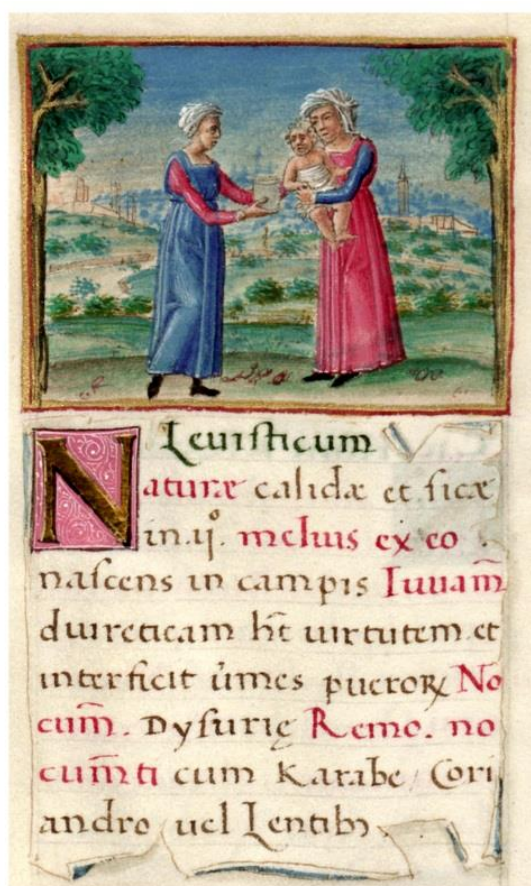 Leuisticum
Naturæ calidæ et sicæ
in.ijº. melius ex eo .
nascens in campis Iuuam̄
duireticam hr̄t uirtutem et
interficit ūmes pueroꝝ No
cum̄. Dysurię Remo. no
cum̄ti cum Karabe / Cori
andro / uel Lentibꝫ